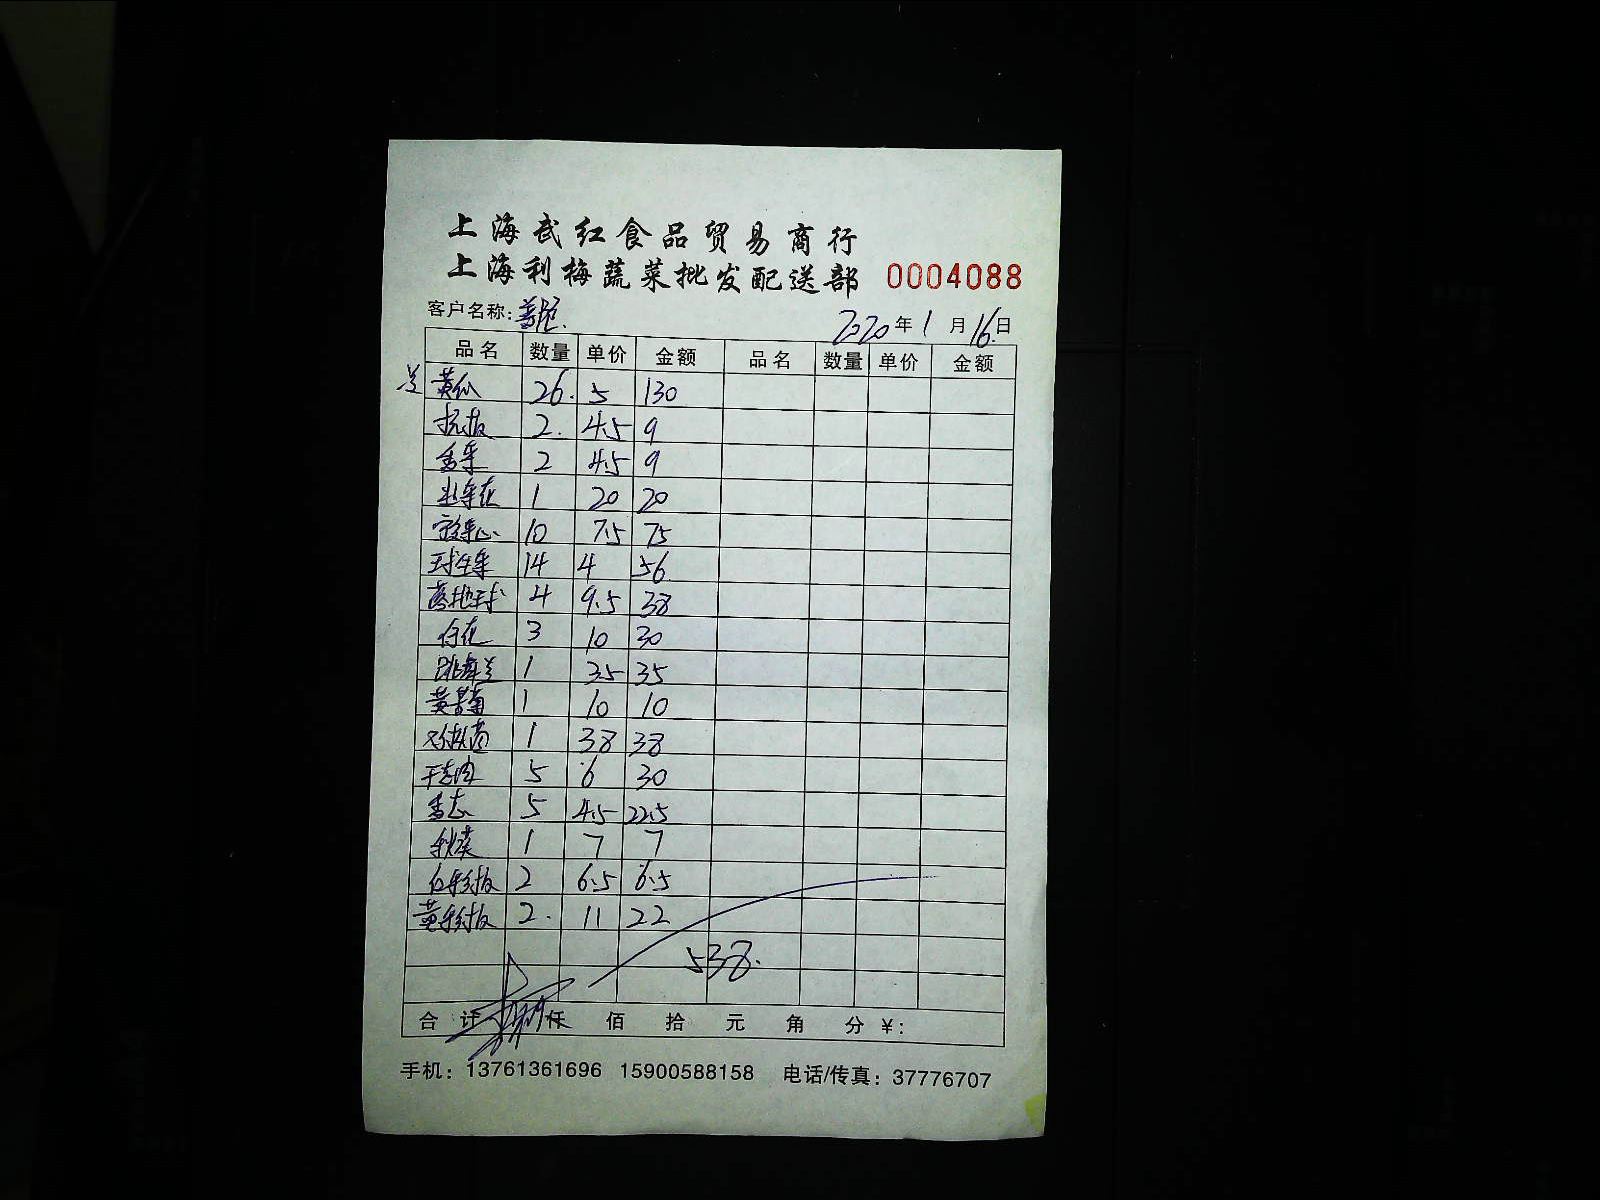 上海武红食品贸易商行
上海利梅蔬菜批发配送部 0004088
客户名称:
2020年1月16日
品名 数量 单价 金额 品名 数量 单价 金额
黄瓜 26. 5 130
2. 4.5 9
香菜 2 4.5 9
1 20 20
10 7.5 75
球生菜 14 4 56
落地球 4 9.5 38
白花 3 10 30
跳舞兰 1 35 35
黄 1 10 10
1 38 38
5 6 30
5 4.5 22.5
秋葵 1 7 7
红彩椒 2 6.5 6.5
黄彩椒 2. 11 22
538.
合计 仟 佰 拾 元 角 分 ¥:
手机: 13761361696 15900588158 电话/传真: 37776707